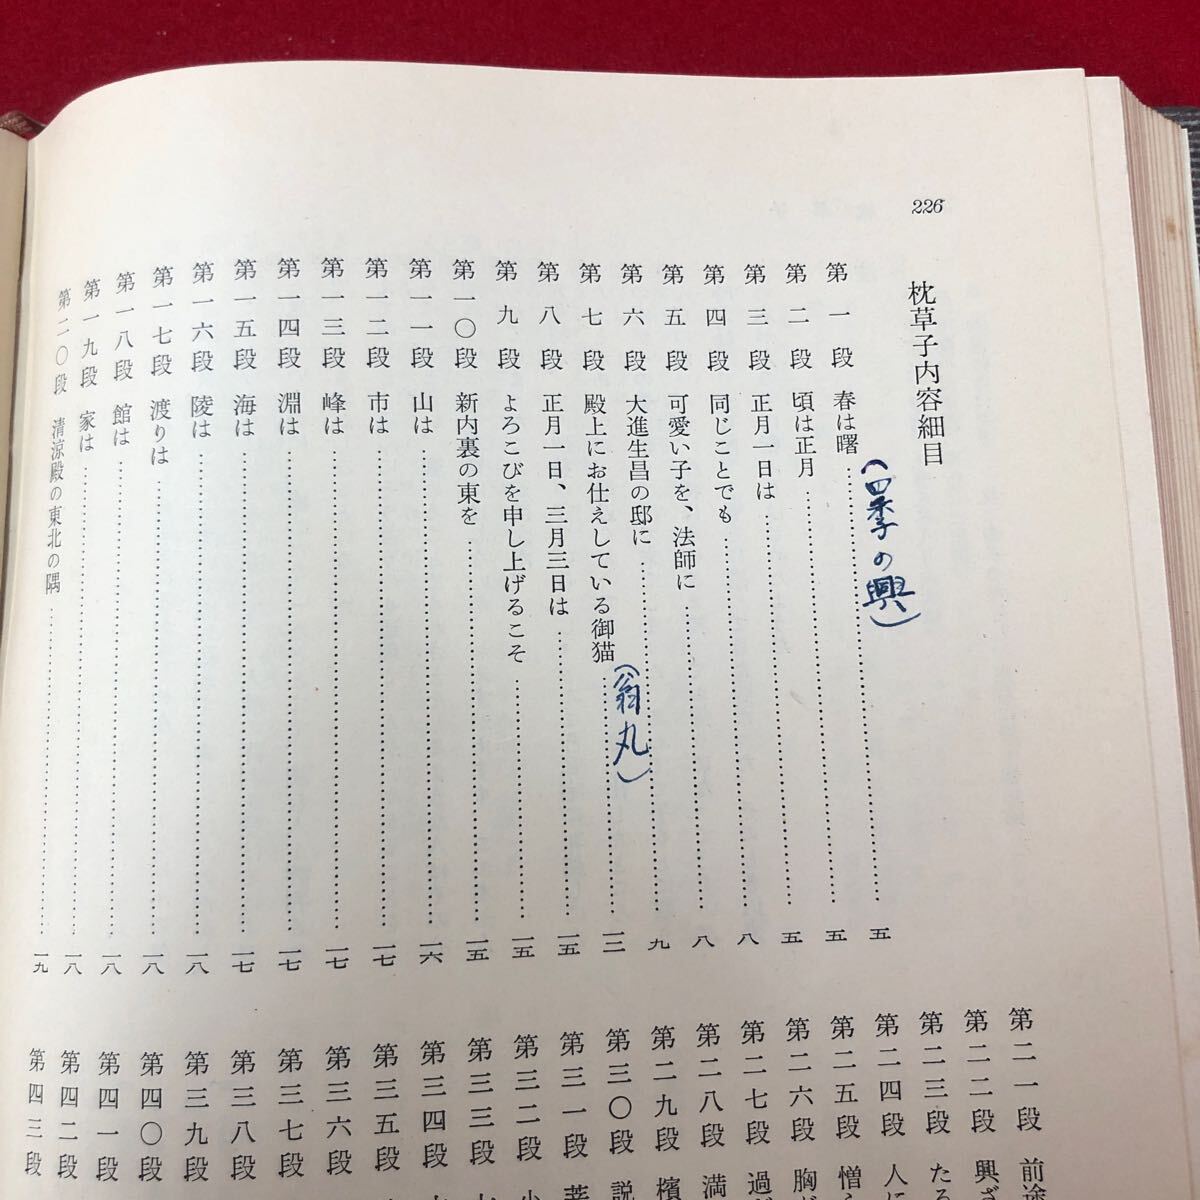 226
枕草子内容細目
第一段 春は曙……五
(四季の興)
第二段 頃は正月……五
第三段 正月一日は……五
第四段 同じことでも……八
第五段 可愛い子を、法師に……八
第六段 大進生昌の邸に……九
第七段 殿上にお仕えしている御猫……一二
(翁丸)
第八段 正月一日、三月三日は……一五
第九段 よろこびを申し上げるこそ……一五
第一〇段 新内裏の東を……一五
第一一段 山は……一六
第一二段 市は……一七
第一三段 峰は……一七
第一四段 淵は……一七
第一五段 海は……一七
第一六段 陵は……一八
第一七段 渡りは……一八
第一八段 館は……一八
第一九段 家は……一八
第二〇段 清涼殿の東北の隅……一九
第二一段 前途
第二二段 興ざ
第二三段 たる
第二四段 人に
第二五段 憎
第二六段 胸が
第二七段 過
第二八段 満
第二九段 檳
第三〇段 説
第三一段 菩
第三二段 小
第三三段
第三四段
第三五段
第三六段
第三七段
第三八段
第三九段
第四〇段
第四一段
第四二段
第四三段